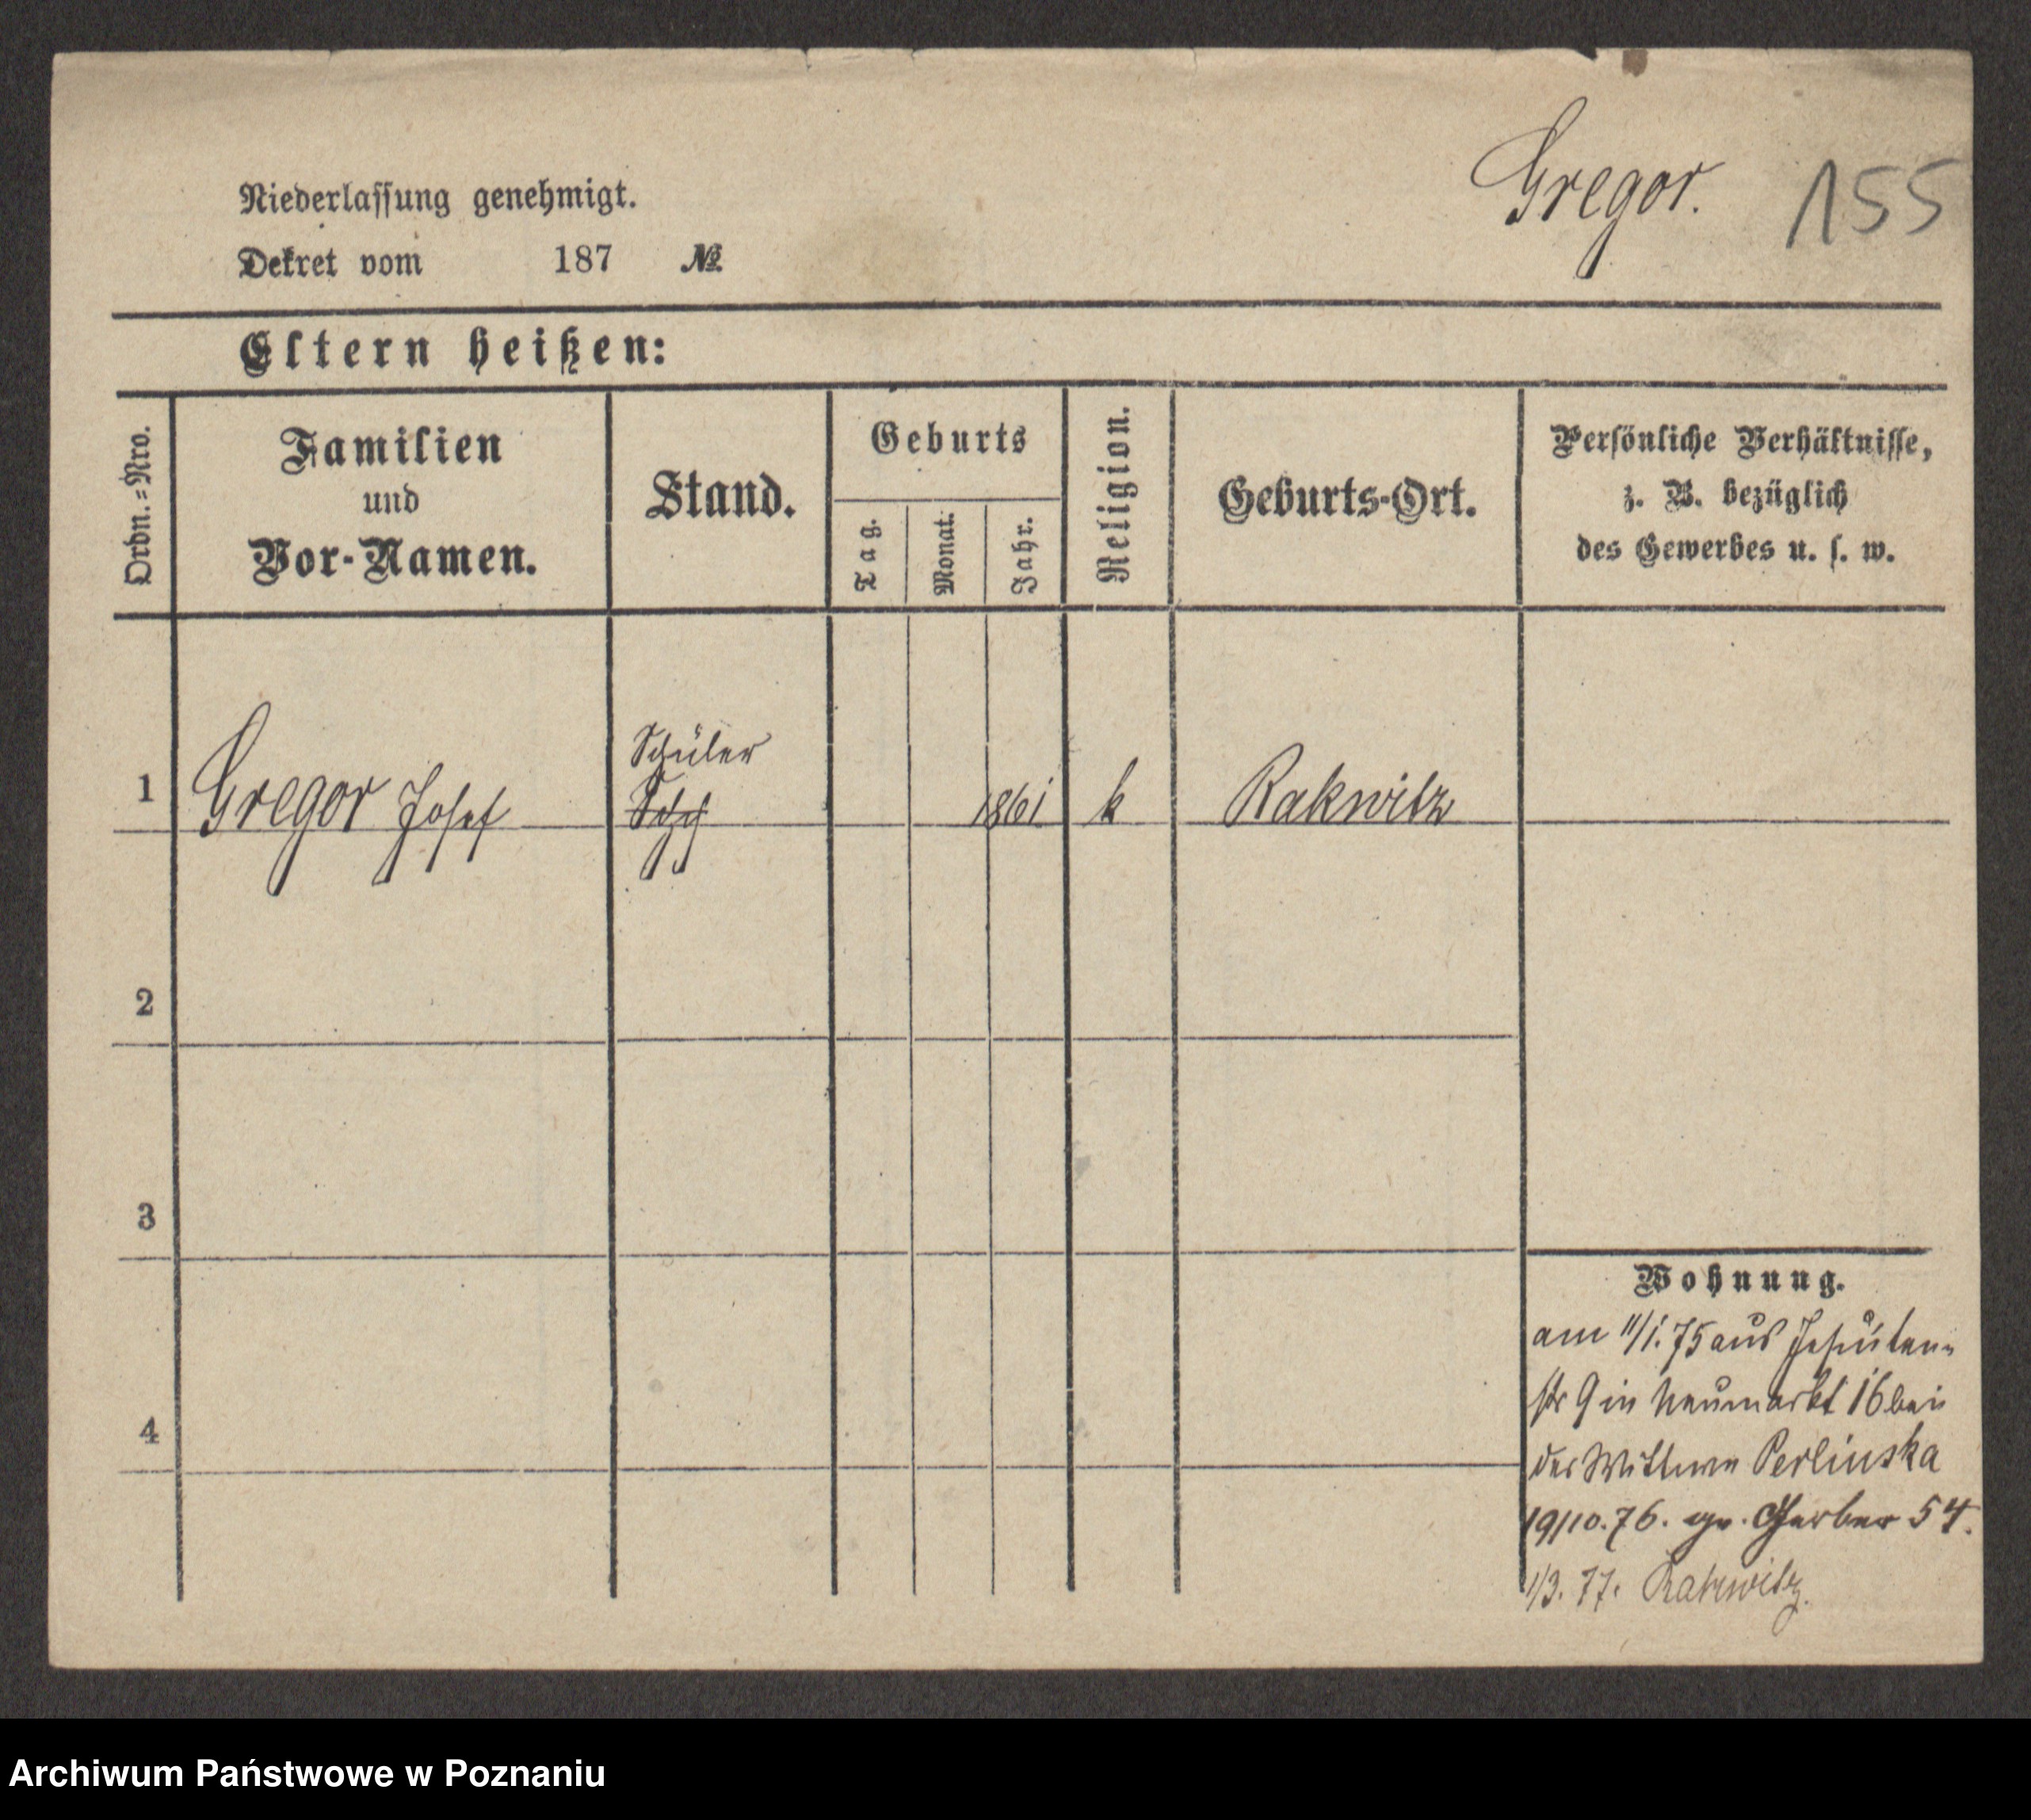 Gregor. 155
Niederlassung genehmigt.
Dekret vom 187 №
Eltern heißen:
Ordn.=Nro.
Familien
und
Vor-Namen.
Stand.
Geburts
Tag.
Monat.
Jahr.
Religion.
Geburts-Ort.
Persönliche Verhältnisse,
z. B. bezüglich
des Gewerbes u. s. w.
Schüler
1 Gregor Josef 1861 k Rakwitz
2
3
4
Wohnung.
am 11/1. 75 aus Jesuiten-
str 9 in Neumarkt 16 bei
der Wittwe Perlinska
19/10. 76. gr. Gerber 54.
1/3. 77. Rakwitz.
Archiwum Państwowe w Poznaniu